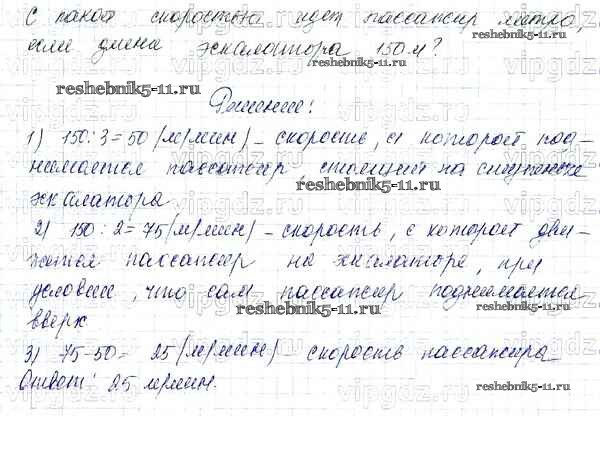 С какой скоростью идет пассажир метро,
если длина эскалатора 150 м?
reshebnik5-11.ru
reshebnik5-11.ru
Решение:
1) 150:3=50 (м/мин) – скорость, с которой под-
нимается пассажир, стоящий на ступеньке
reshebnik5-11.ru
эскалатора.
2) 150:2=75 (м/мин) – скорость, с которой дви-
жется пассажир на эскалаторе, при
условии, что сам пассажир поднимается
вверх
reshebnik5-11.ru
3) 75-50= 25 (м/мин) – скорость пассажира
Ответ: 25 м/мин.
reshebnik5-11.ru